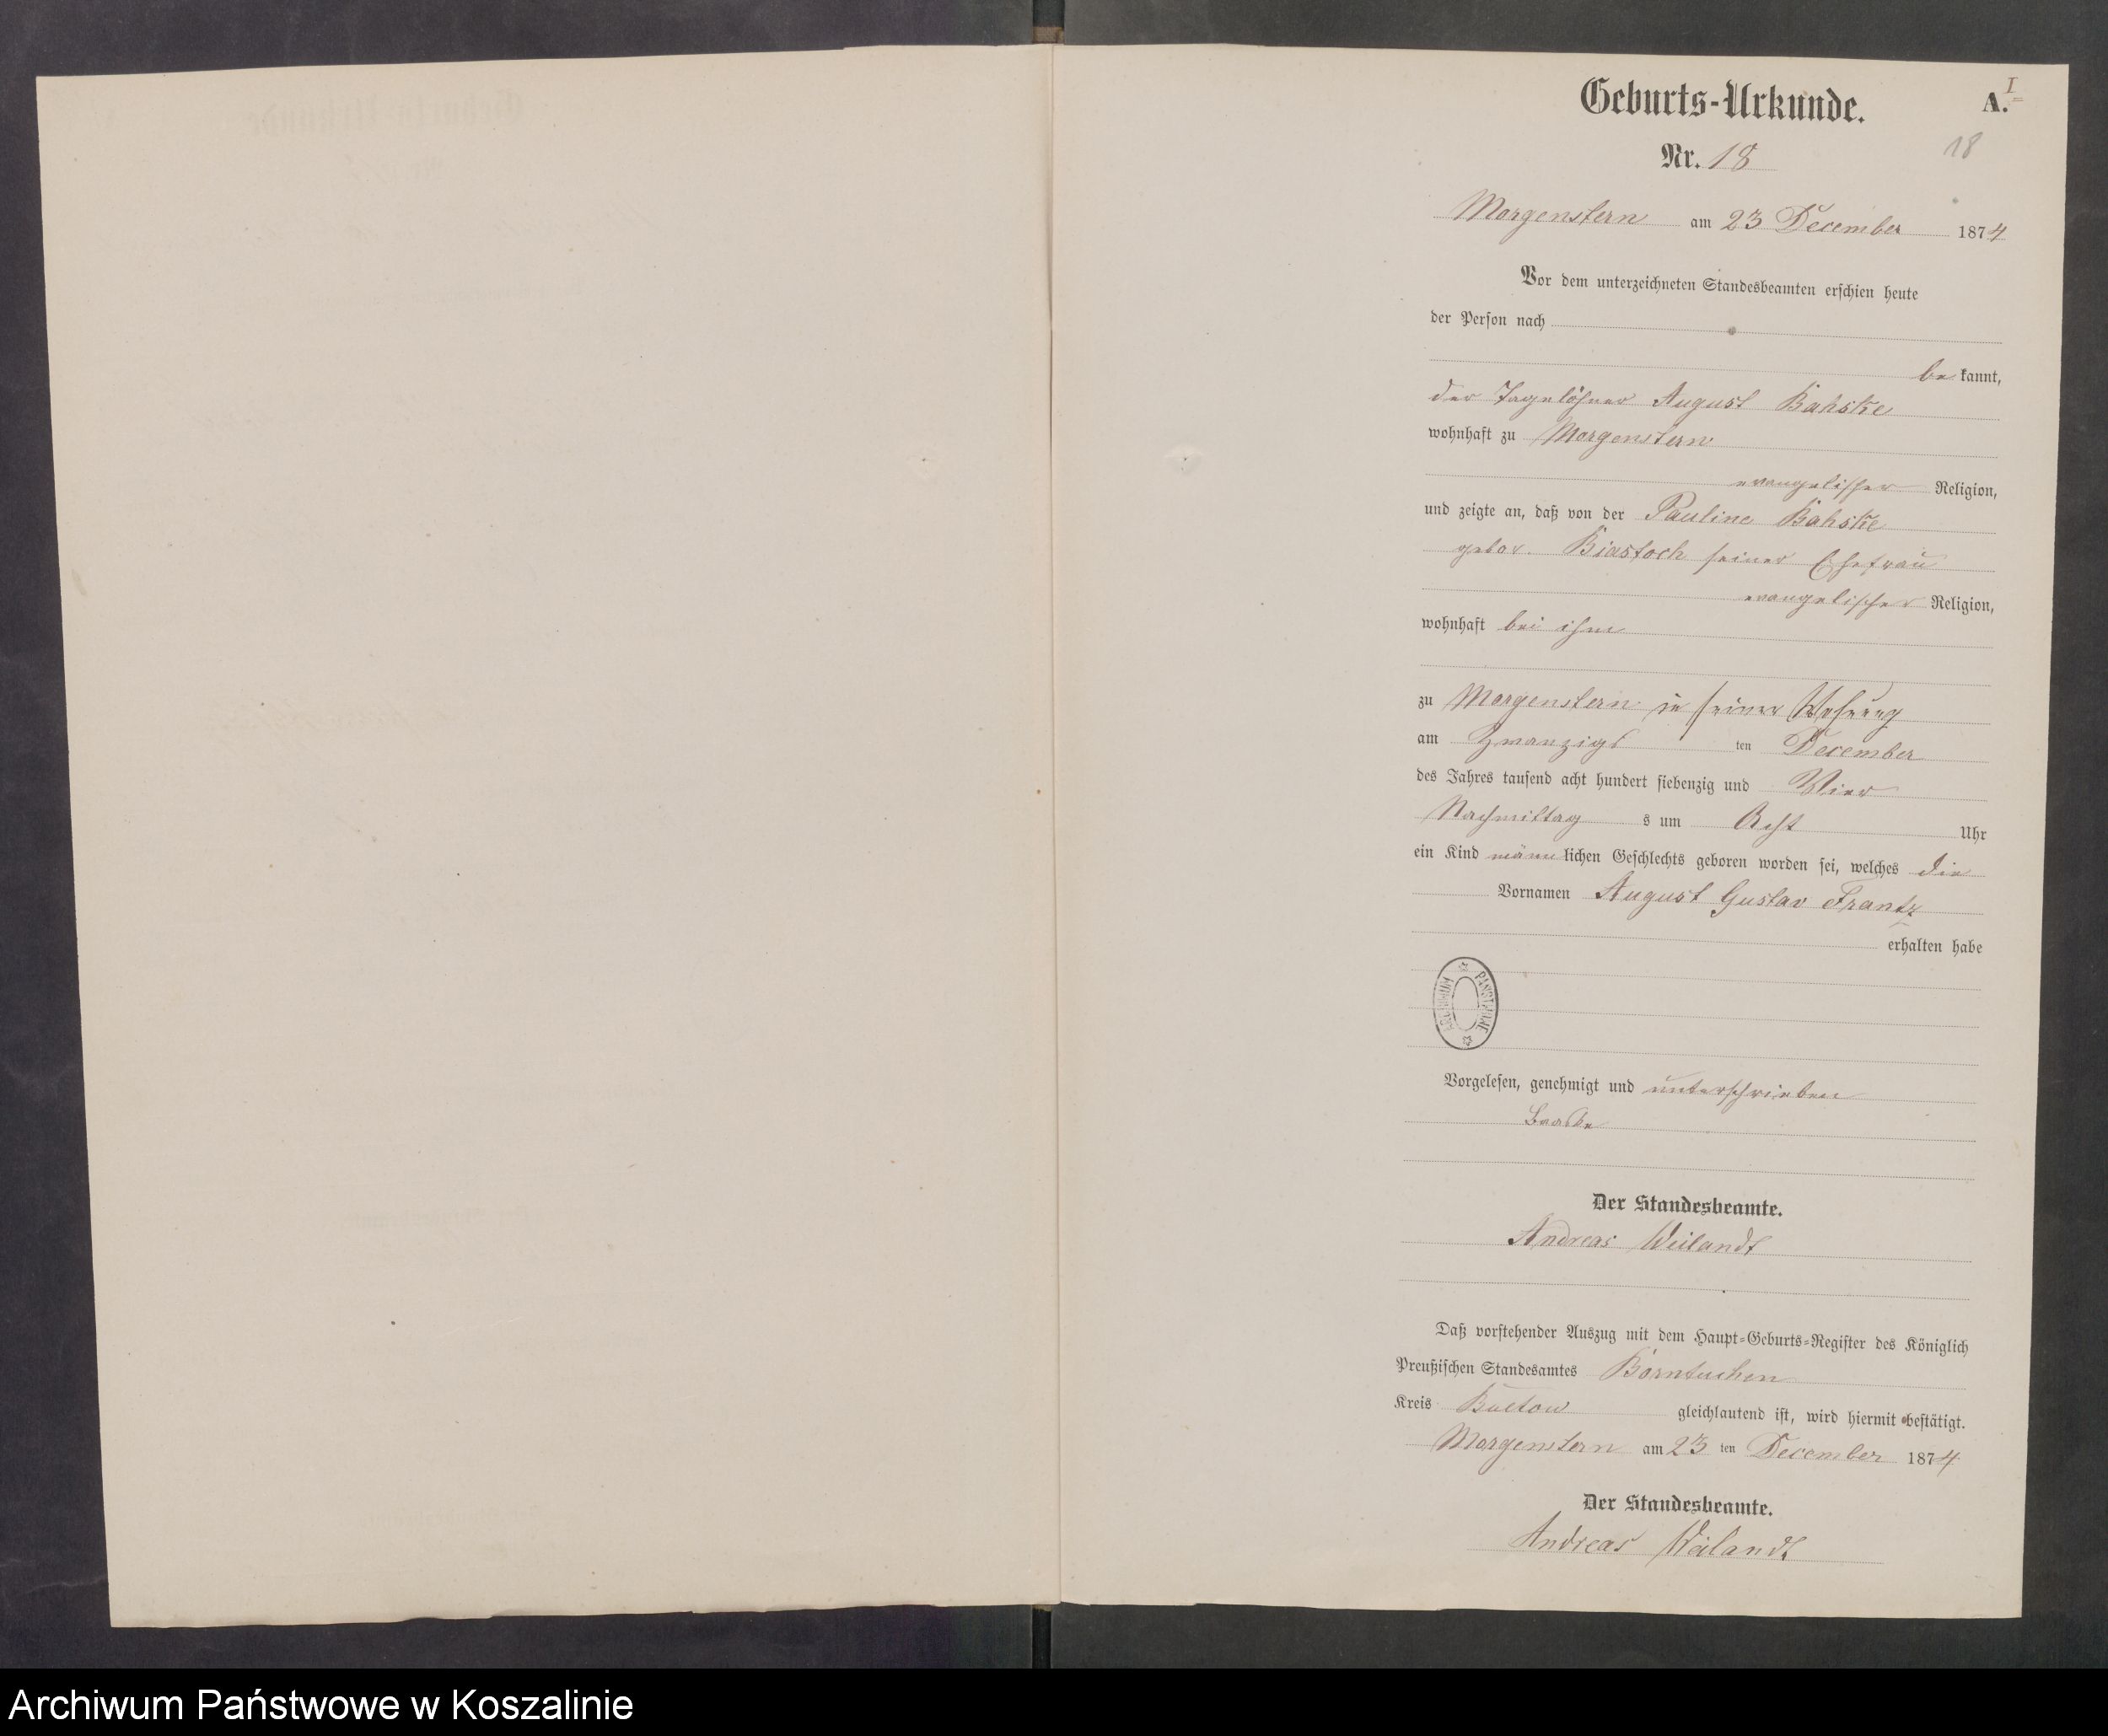 Geburts-Urkunde.
A. I
18
Nr. 18
Morgenstern am 23 December 1874
Vor dem unterzeichneten Standesbeamten erschien heute
der Person nach
be kannt,
der Tagelöhner August Bahske
wohnhaft zu Morgenstern
evangelischer Religion,
und zeigte an, daß von der Pauline Bahske
gebor. Biastoch seiner Ehefrau
evangelischer Religion,
wohnhaft bei ihm
zu Morgenstern in seiner Wohnung
am Zwanzigs ten December
des Jahres tausend acht hundert siebenzig und Vier
Nachmittag s um Acht Uhr
ein Kind männlichen Geschlechts geboren worden sei, welches die
Vornamen August Gustav Frantz
erhalten habe
ARCHIWUM PAŃSTWOWE
Vorgelesen, genehmigt und unterschrieben
Der Standesbeamte.
Andreas Weilandt
Daß vorstehender Auszug mit dem Haupt-Geburts-Register des Königlich
Preußischen Standesamtes Borntuchen
Kreis Buetow gleichlautend ist, wird hiermit bestätigt.
Morgenstern am 23 ten December 1874
Der Standesbeamte.
Andreas Weilandt
Archiwum Państwowe w Koszalinie